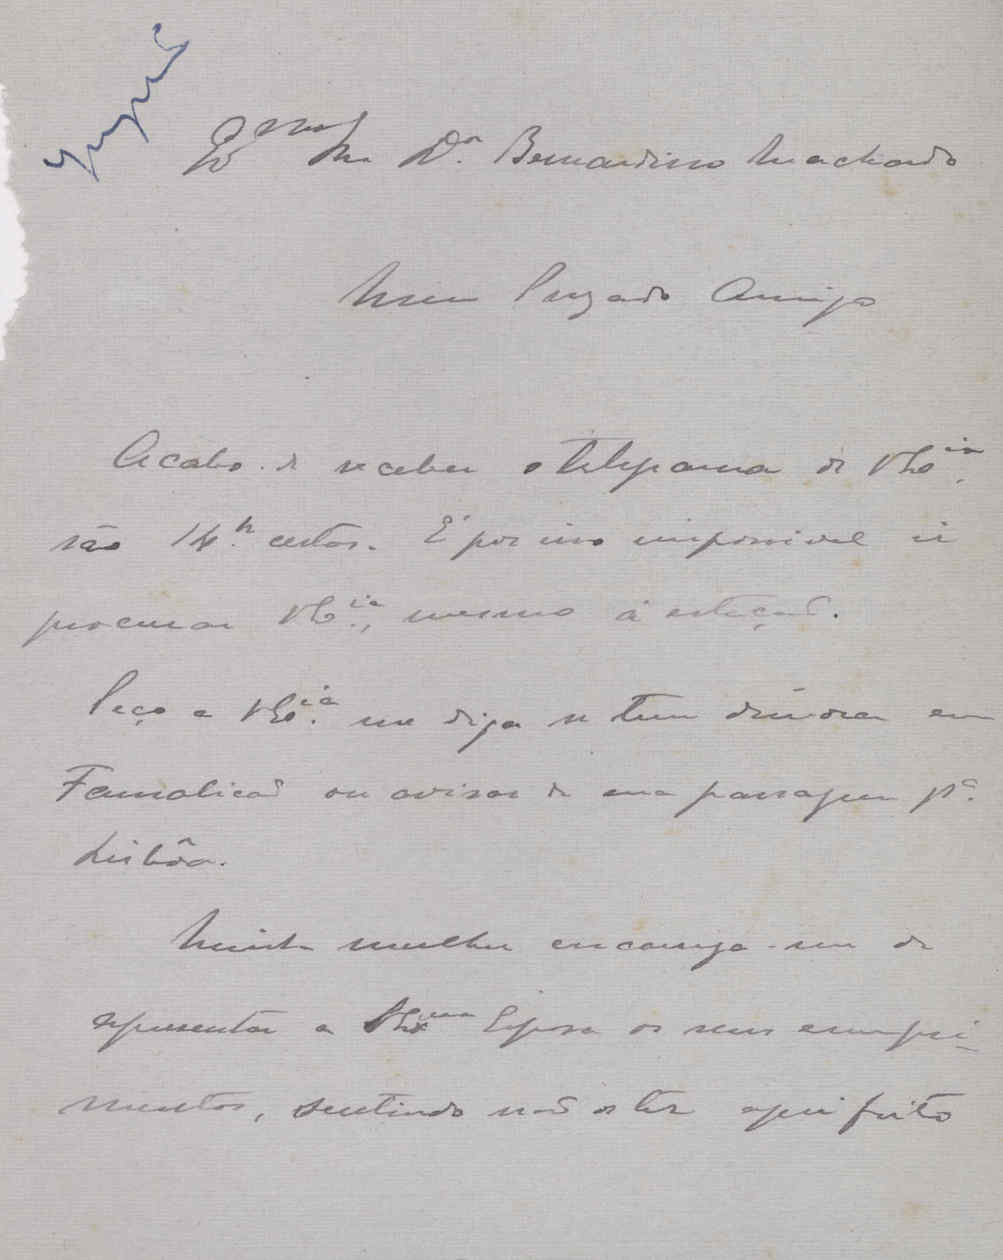 Ex.mo Snr Dr. Bernardino Machado
Meu Prezado Amigo
Acabo de receber o telegrama de V. Ex.cia
são 14 h. certas. É por isso impossivel ir
procurar V. Ex.cia, mesmo á estação.
Peço a V. Ex.cia me diga se tem demora em
Famalicão ou avisar de sua passagem p.a
Lisbôa.
Minha mulher encarrega-me de
apresentar a Ex.ma Esposa os seus cumpri-
mentos, sentindo não os ter aqui feito